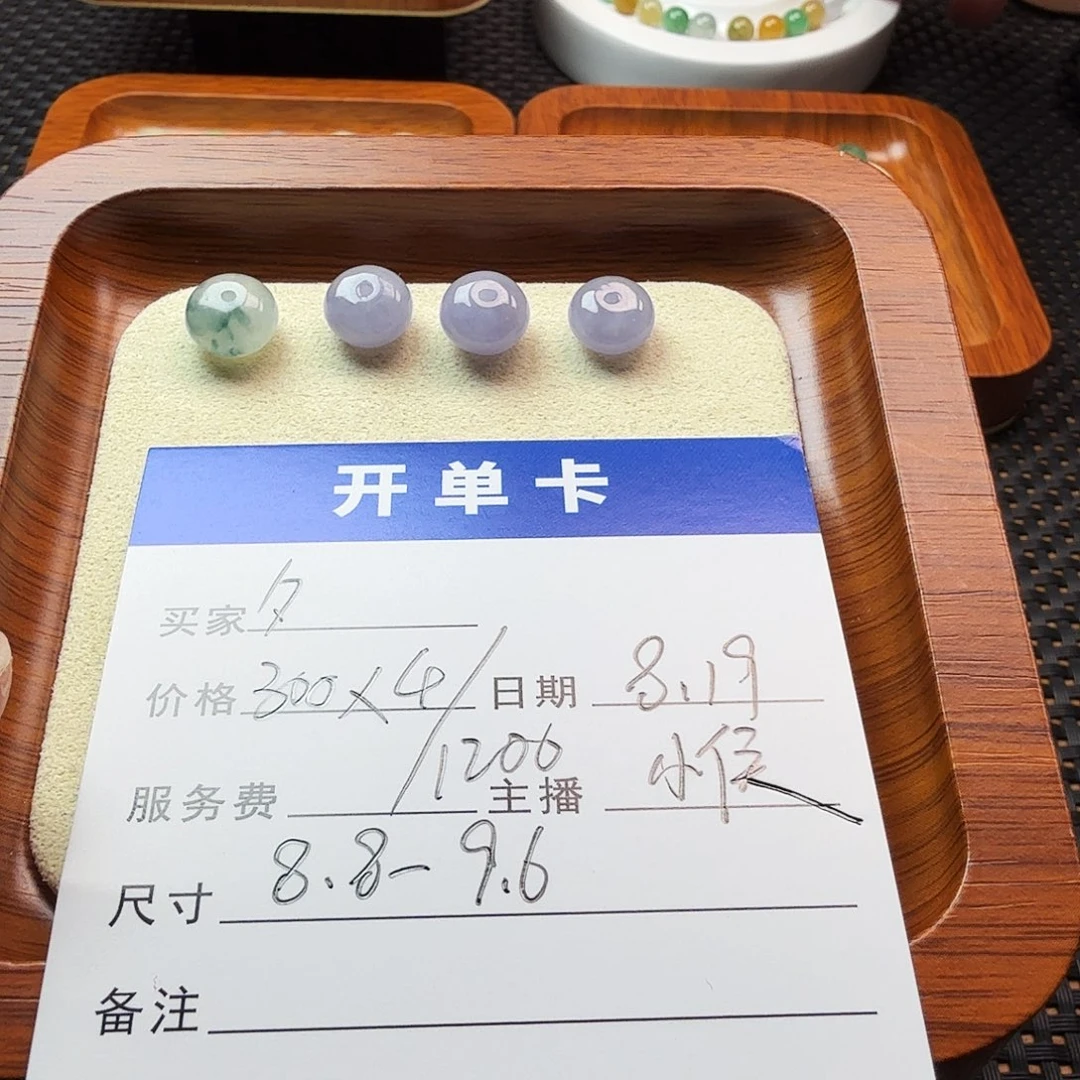 开单卡
买家 夕
价格 300×4/ 日期 8.19
服务费 /1200 主播 小侯
尺寸 8.8-9.6
备注